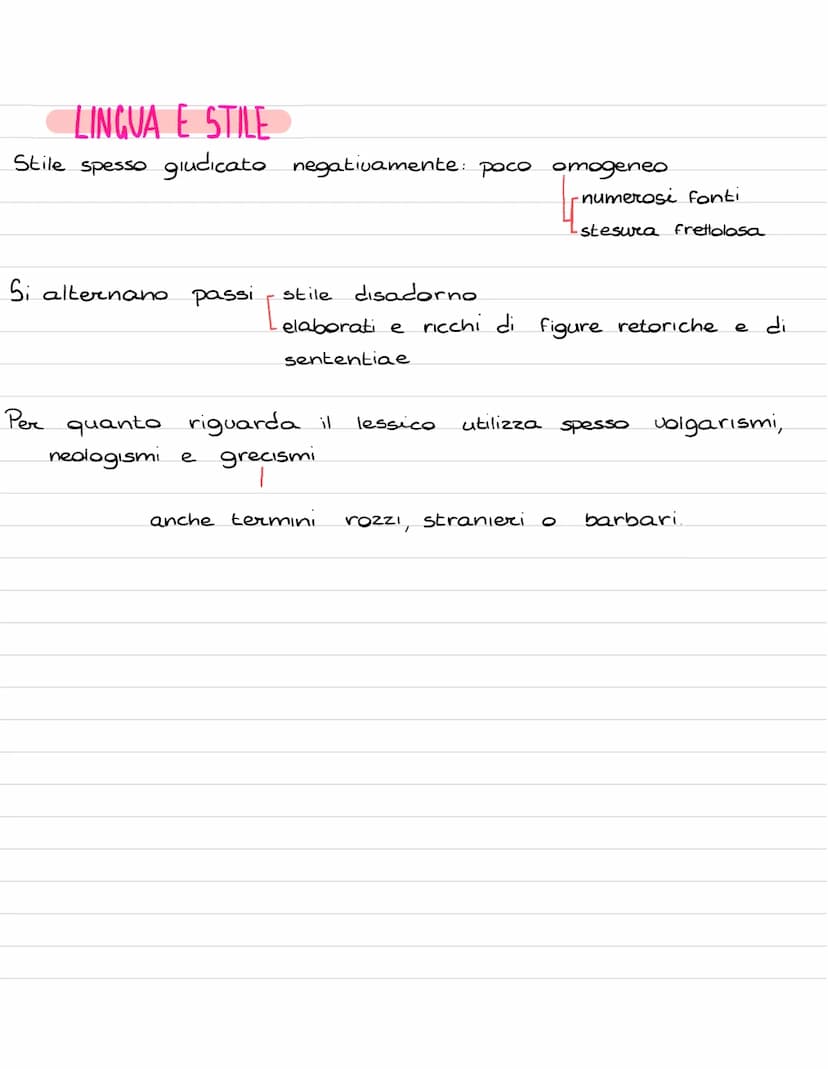 LINGUA E STILE
Stile spesso giudicato negativamente: poco omogeneo
numerosi fonti
stesura frettolosa
Si alternano passi stile disadorno
elaborati e ricchi di figure retoriche e di
sententiae
Per quanto riguarda il lessico utilizza spesso volgarismi,
neologismi e grecismi
anche termini rozzi, stranieri o barbari.